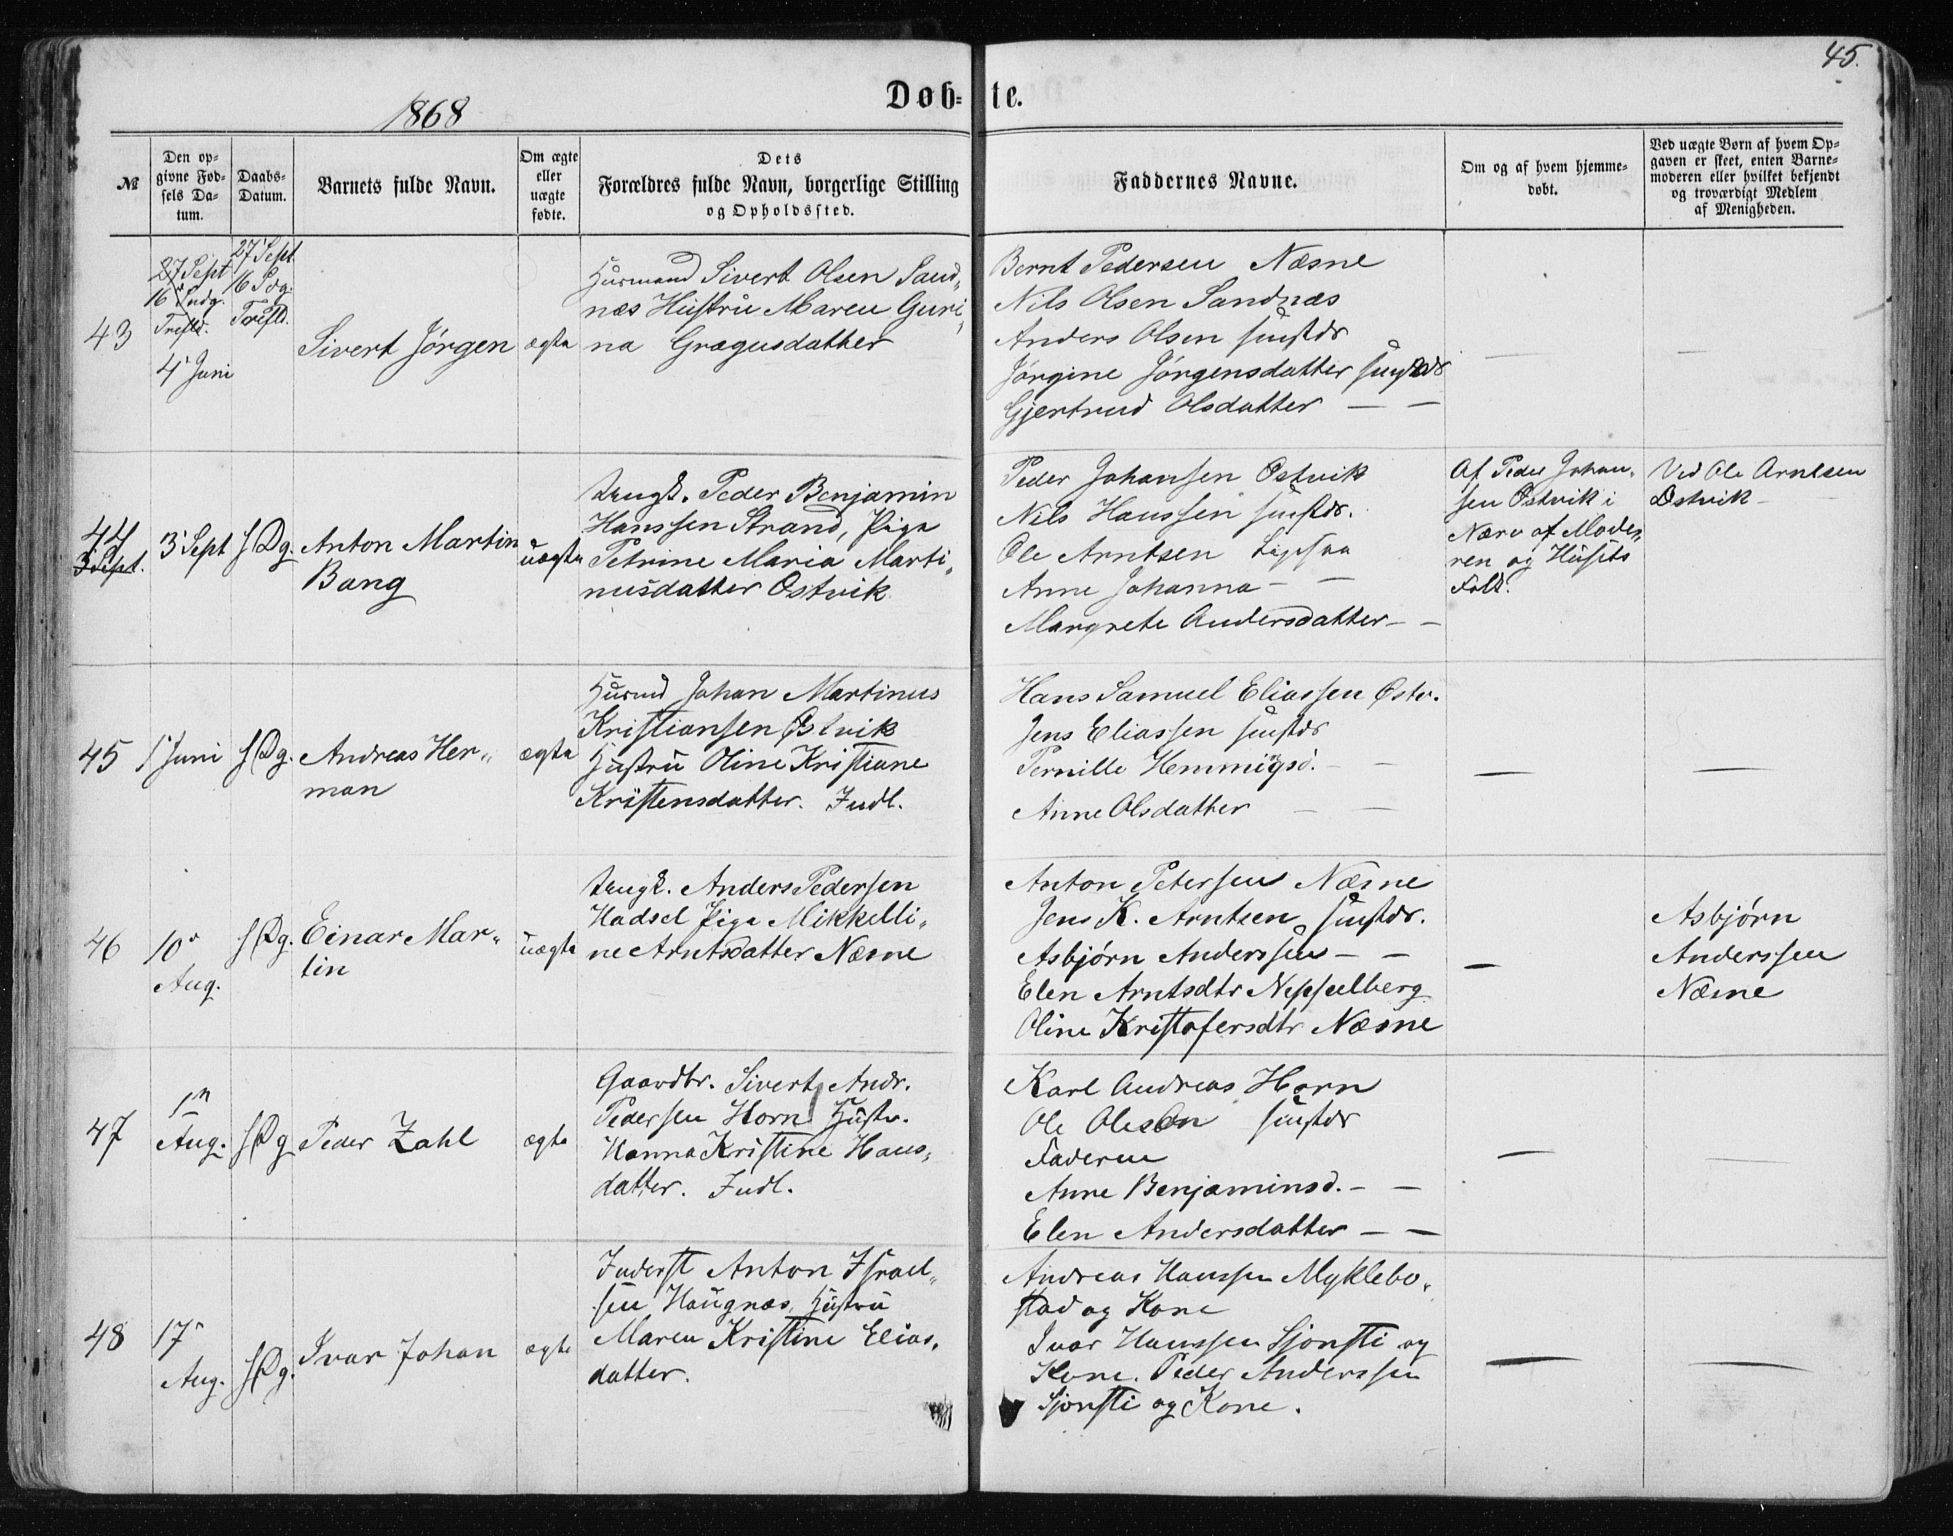 45.
1868
Døb- te.
№
Den op-
givne Fød-
sels Da-
tum.
Daabs-
Datum.
Barnets fulde Navn.
Om ægte
eller
uægte
fødte.
Dets
Forældres fulde Navn, borgerlige Stilling
og Opholdssted.
Faddernes Navne.
Om og af hvem hjemme-
døbt.
Ved uægte Børn af hvem Op-
gaven er skeet, enten Barne-
moderen eller hvilket bekjendt
og troværdigt Medlem
af Menigheden.
43
27 Sept
16 Sndg.
Trefld.
4 Juni
27 Sept
16 Sdg.
Trefld.
Sivert Jørgen
ægte
Husmand Sivert Olsen Sand-
næs Hustru Maren Guri-
na Grægusdatter
Bernt Pedersen Næsne
Nils Olsen Sandnæs
Anders Olsen smstds
Jørgine Jørgensdatter smstds
Gjertrud Olsdatter — —
—
—
44
3 Sept.
3 Sept
s. Dg.
Anton Martin
Bang
uægte
Ungk. Peder Benjamin
Hanssen Strand, Pige
Petrine Maria Marti-
nusdatter Ostvik
Peder Johansen Ostvik
Nils Hanssen smstds.
Ole Arntsen
Anne Johanna — —
Margrete Andersdatter — —
Af Peder Johan-
sen Ostvik i
Nærv af Mode-
ren og Husets
Folk.
Ved Ole Arntsen
Ostvik
45
1 Juni
s. Dg.
Andreas Her-
man
ægte
Husmd Johan Martinus
Kristiansen Østvik
Hustru Oline Kristiane
Kristensdatter. Indl.
Hans Samuel Eliassen Østv.
Jens Eliassen smstds
Pernille Hemmigsd. — —
Anne Olsdatter — —
—
—
46
10
Aug.
s. Dg.
Einar Mar-
tin
uægte
Ungk. Anders Pedersen
Hadsel Pige Mikkelli-
ne Arntsdatter Næsne
Anton Petersen Næsne
Jens K. Arntsen smstds.
Asbjørn Anderssen — —
Elen Arntsdtr Nesselberg
Oline Kristofersdtr Næsne
—
Asbjørn
Anderssen
Næsne
47
1
Aug.
s. Dg
Peder Zahl
ægte
Gaardbr. Sivert Andr.
Pedersen Horn Hustr.
Hanna Kristine Hans-
datter. Indl.
Karl Andreas Horn
Ole Olesen smstds
Faderen
Anne Benjaminsd. — —
Elen Andersdatter — —
—
—
48
17
Aug.
s. Dg.
Ivar Johan
ægte
Inderst Anton Israel-
sen Haugnæs, Hustru
Maren Kristine Elias-
datter.
Andreas Hanssen Myklebo-
stad og Kone
Ivar Hanssen Sjonsti og
Kone. Peder Anderssen
Sjonsti og Kone.
—
—